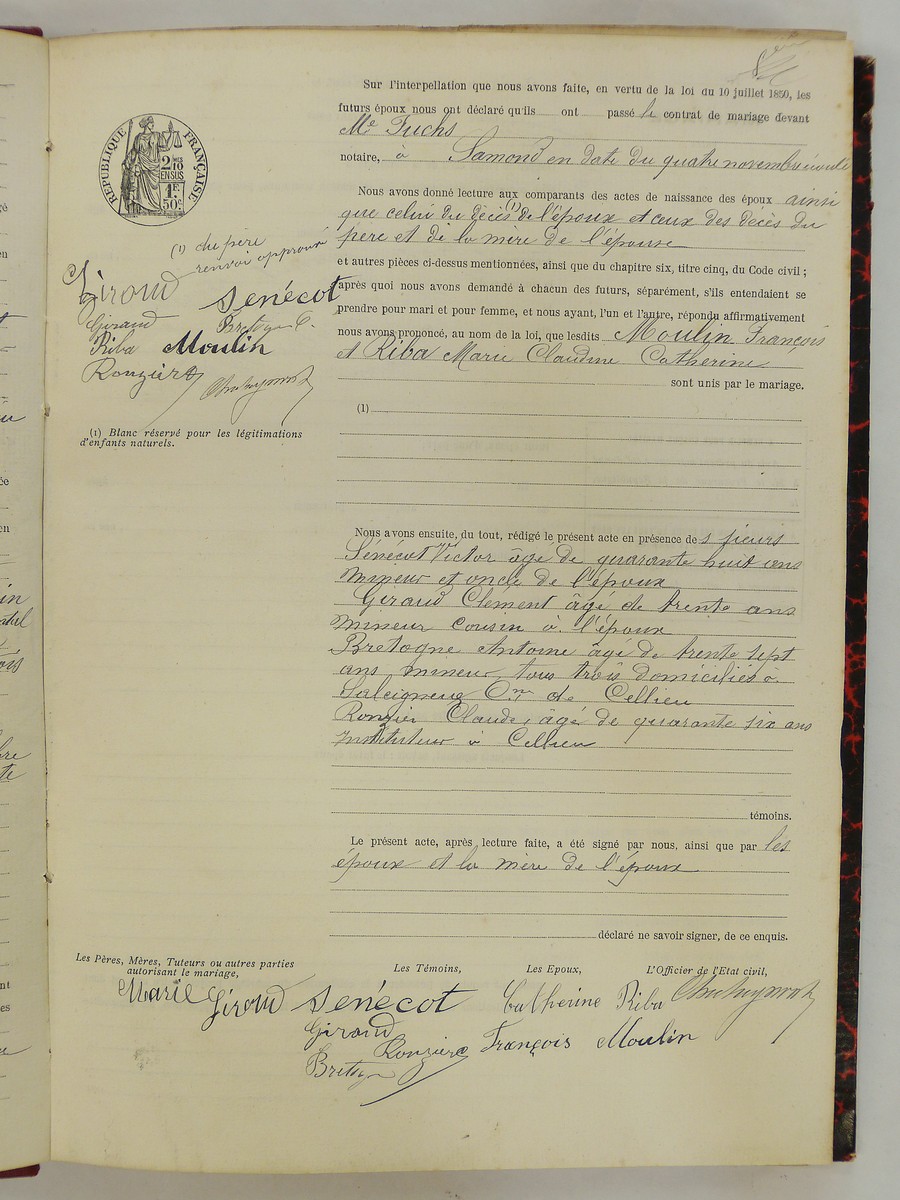 Sur l'interpellation que nous avons faite, en vertu de la loi du 10 juillet 1850, les
futurs époux nous ont déclaré qu'ils ont passé le contrat de mariage devant
Me Fuchs
notaire, à Lamond en date du quatre novembre
Nous avons donné lecture aux comparants des actes de naissance des époux ainsi
que celui du décès (1) de l'époux et ceux des décès du
père et de la mère de l'épouse
et autres pièces ci-dessus mentionnées, ainsi que du chapitre six, titre cinq, du Code civil ;
après quoi nous avons demandé à chacun des futurs, séparément, s'ils entendaient se
prendre pour mari et pour femme, et nous ayant, l'un et l'autre, répondu affirmativement
nous avons prononcé, au nom de la loi, que lesdits Moulin François
et Riba Marie Claudine Catherine
sont unis par le mariage.
(1)
RÉPUBLIQUE FRANÇAISE
2 MES
10
EN SUS
1F.
50c
(1) du père
renvoi approuvé
Giroud Senécot
Giraud Bretogne C.
Riba Moulin
Ronzière
(1) Blanc réservé pour les légitimations
d'enfants naturels.
Nous avons ensuite, du tout, rédigé le présent acte en présence des sieurs
Sénécot Victor âgé de quarante huit ans
mineur et oncle de l'époux
Giraud Clément âgé de trente ans
mineur cousin à l'époux
Bretogne Antoine âgé de trente sept
ans mineur, tous trois domiciliés à
Salcigneux Cne de Cellieu
Ronzier Claude, âgé de quarante six ans
instituteur à Cellieu
témoins.
Le présent acte, après lecture faite, a été signé par nous, ainsi que par les
époux et la mère de l'époux
déclaré ne savoir signer, de ce enquis.
Les Pères, Mères, Tuteurs ou autres parties
autorisant le mariage,
Les Témoins,
Les Epoux,
L'Officier de l'Etat civil,
Marie Giroud Senécot Catherine Riba
Giraud
Ronzière François Moulin
Bretogne